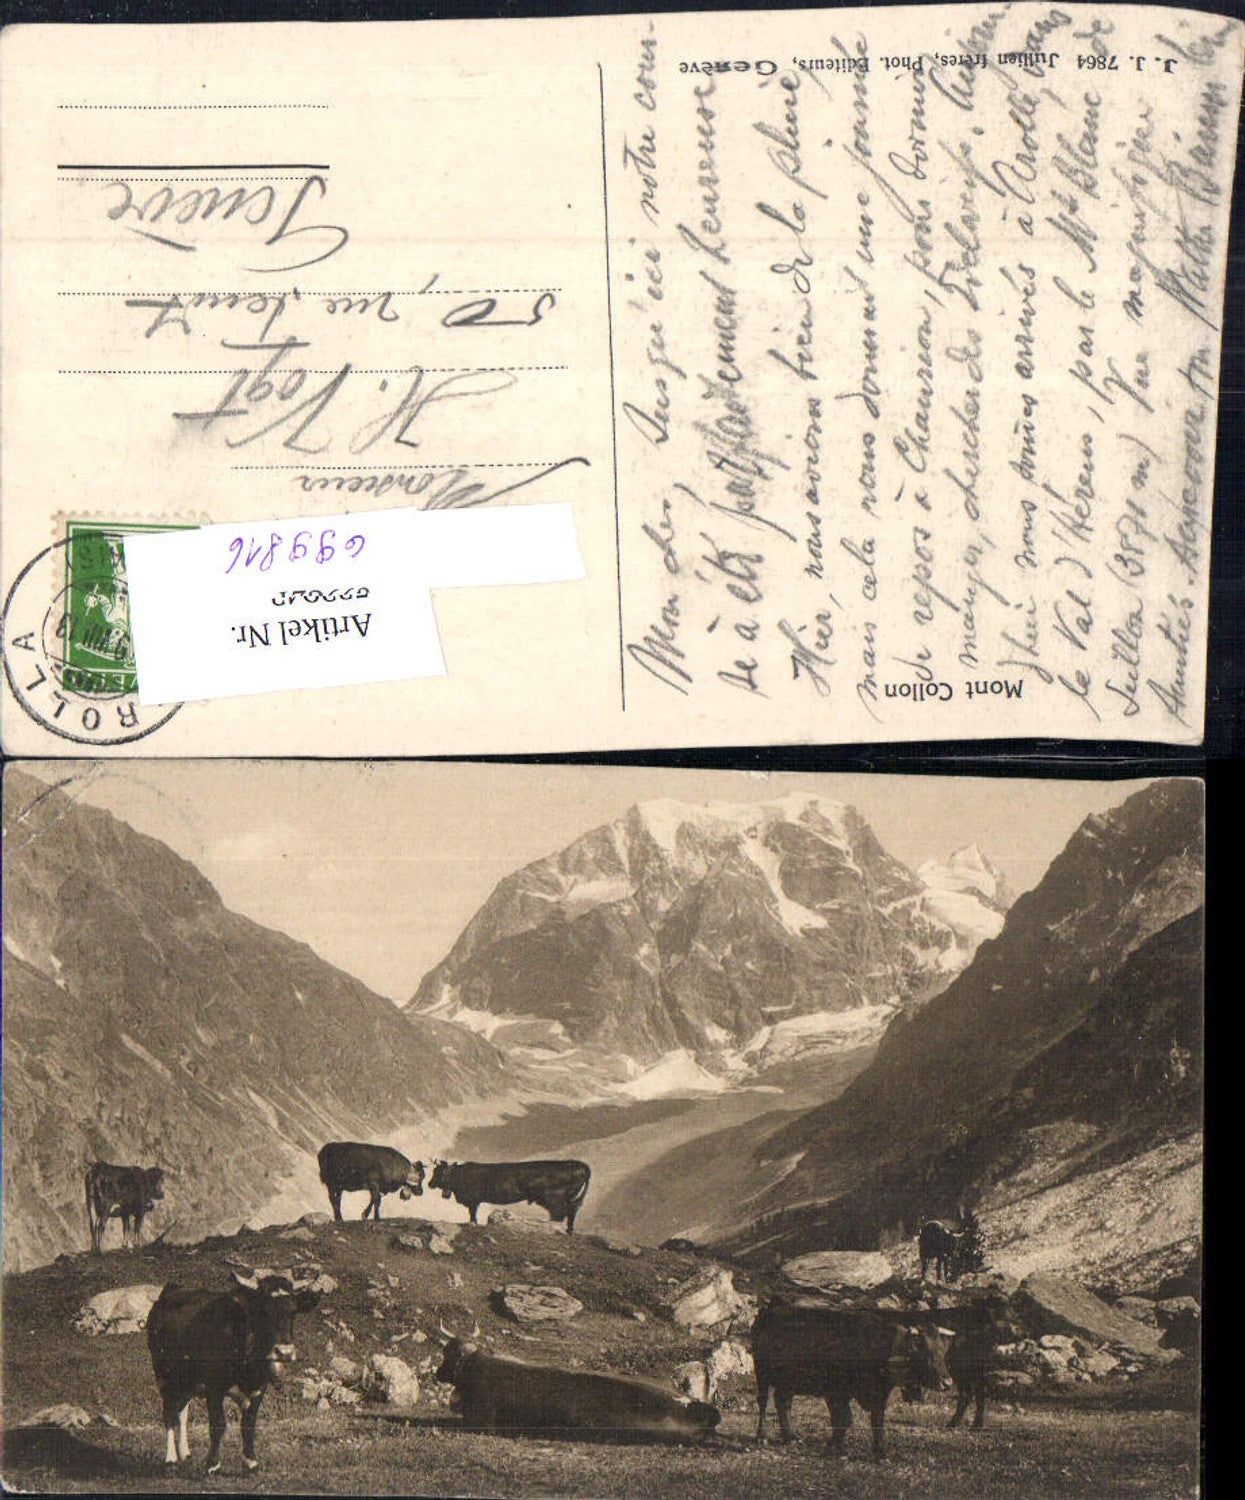 J. J. 7864 Jullien frères, Phot. Editeurs, Genève
Mont Collon
Mon cher, Jusqu'ici notre cour-
se a été parfaitement heureuse
Hier, nous avions bien de la pluie,
mais cela nous donnait une journée
de repos à Chanrion, pour dormir
manger, chercher des Edelweiss. Aujour-
d'hui nous sommes arrivés à Arolla, dans
le Val d'Hérens, par le Mt Blanc de
Seillon (3871 m) Vue magnifique
Amitiés. Au revoir ton
Monsieur
H. Vogt
50, rue
Genève
AROLLA
Artikel Nr.
699816